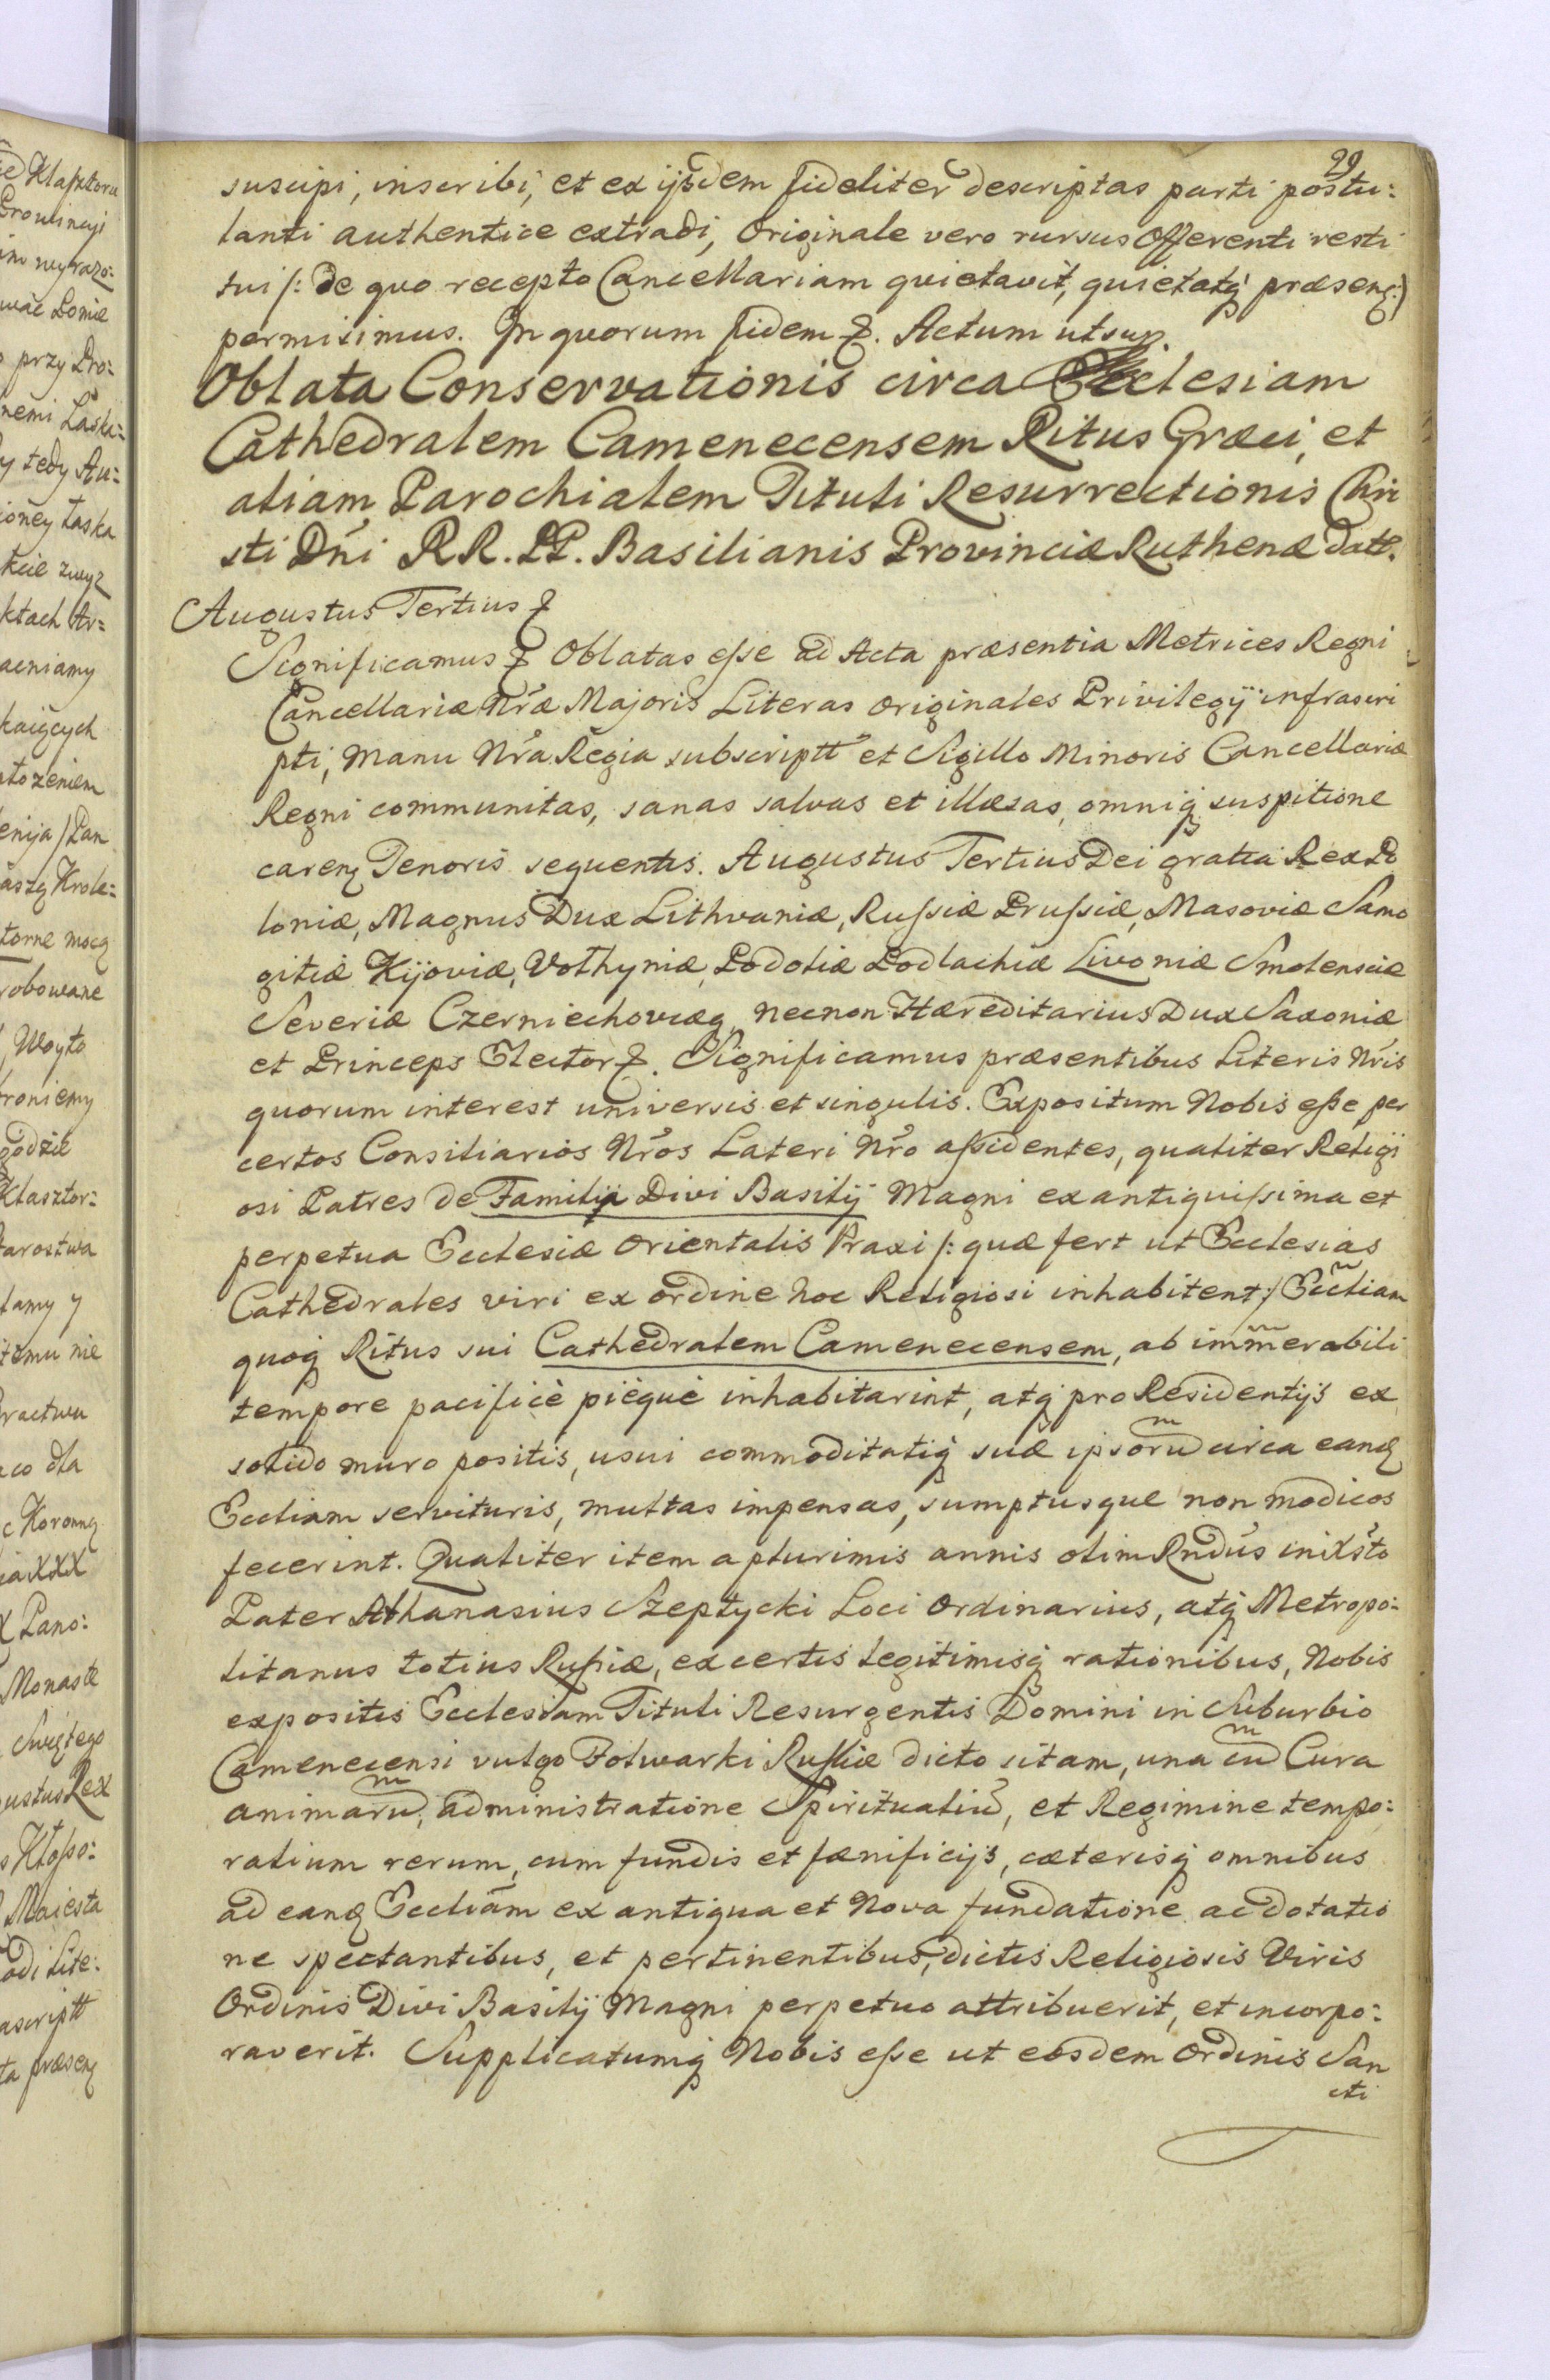 99
suscipi, inscribi, et ex ijsdem fideliter descriptas parti postu:
lanti authentice extradi, Originale vero rursus Offerenti resti
tui /: de quo recepto Cancellariam quietavit, quietatq́ præsenq́:)
permisimus. In quorum fidem &. Actum ut sup.
Oblata Conservationis circa Ecclesiam
Cathedralem Camenecensem Ritus Græci, et
aliam Parochialem Tituli Resurrectionis Chri
sti Dn̄i RR. PP. Basilianis Provinciæ Ruthenæ datt.
Augustus Tertius &
Significamus & Oblatas eſse ad Acta præsentia Metrices Regni
Cancellariæ Nr̄æ Majoris Literas originales Privilegÿ infrascri
pti, Manu Nr̄a Regia subscriptt et Sigillo Minoris Cancellariæ
Regni communitas, sanas salvas et illæsas, omniq́ suspitione
carenq́ Tenoris sequentis. Augustus Tertius Dei gratia Rex Po
loniæ, Magnus Dux Lithvaniæ, Ruſsiæ Pruſsiæ, Masoviæ Samo
gitiæ Kijoviæ, Volhyniæ, Podoliæ Podlachiæ Livoniæ Smolensciæ
Severiæ Czerniechoviæq́ necnon Hæreditarius Dux Saxoniæ
et Princeps Elector &. Significamus præsentibus Literis Nr̄is
quorum interest universis et singulis. Expositum Nobis eſse per
certos Consiliarios Nr̄os Lateri Nr̄o aſsidentes, qualiter Religi
osi Patres de Familia Divi Basilÿ Magni ex antiquiſsima et
perpetua Ecclesiæ Orientalis Praxi /: quæ fert ut Ecclesias
Cathedrales viri ex ordine hoc Religiosi inhabitent :/ Eccliam
quoq́ Ritus sui Cathedralem Camenecensem, ab imm̄erabili
tempore pacificè pièqué inhabitarint, atq́ pro Residentijs ex
solido muro positis, usui commoditatiq́ suæ ipsorū circa eanđ
Eccliam servituris, multas impensas, sumptusque non modicos
fecerint. Qualiter item a plurimis annis olim Rndūs in Xsto
Pater Athanasius Szeptycki Loci Ordinarius, atq́ Metropo:
litanus totius Ruſsiæ, ex certis legitimisq́ rationibus, Nobis
expositis Ecclesiam Tituli Resurgentis Domini in Suburbio
Camenecensi vulgo Folwarki Ruſkie dicto sitam, una cū Cura
animarū, administratione Spiritualiū, et Regimine tempo:
ralium rerum, cum fundis et fænificijs, cæterisq́ omnibus
ad eanđ Eccliam ex antiqua et Nova fundatione ac dotatio
ne spectantibus, et pertinentibus, dictis Religiosis Viris
Ordinis Divi Basilij Magni perpetuo attribuerit, et incorpo:
raverit. Supplicatumq́ Nobis eſse ut eosdem Ordinis San
cti